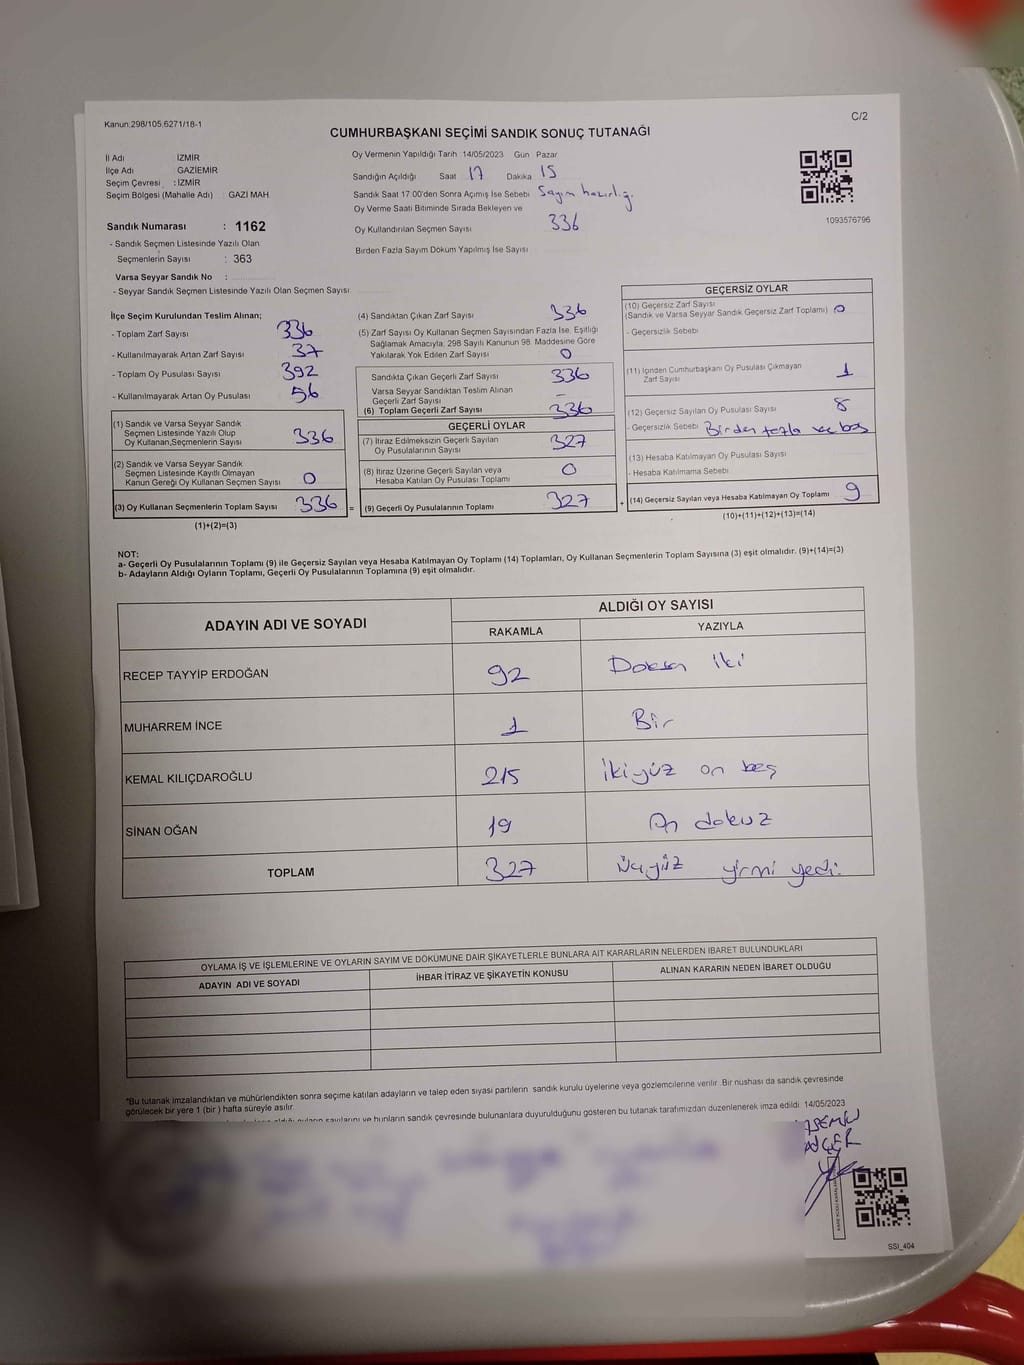 Kanun:298/105,6271/18-1
C/2
CUMHURBAŞKANI SEÇİMİ SANDIK SONUÇ TUTANAĞI
İl Adı : İZMİR
İlçe Adı : GAZİEMİR
Seçim Çevresi : İZMİR
Seçim Bölgesi (Mahalle Adı) : GAZİ MAH
Sandık Numarası : 1162
- Sandık Seçmen Listesinde Yazılı Olan
Seçmenlerin Sayısı : 363
Varsa Seyyar Sandık No :
- Seyyar Sandık Seçmen Listesinde Yazılı Olan Seçmen Sayısı
Oy Vermenin Yapıldığı Tarih 14/05/2023 Gun Pazar
Sandığın Açıldığı Saat 17 Dakika 15
Sandık Saat 17:00'den Sonra Açımış İse Sebebi Sayım hazırlığı
Oy Verme Saati Bitiminde Sırada Bekleyen ve
Oy Kullandırılan Seçmen Sayısı 336
Birden Fazla Sayım Döküm Yapılmış İse Sayısı
1093576796
İlçe Seçim Kurulundan Teslim Alınan;
- Toplam Zarf Sayısı 336
- Kullanılmayarak Artan Zarf Sayısı 37
- Toplam Oy Pusulası Sayısı 392
- Kullanılmayarak Artan Oy Pusulası 56
(1) Sandık ve Varsa Seyyar Sandık
Seçmen Listesinde Yazılı Olup
Oy Kullanan,Seçmenlerin Sayısı 336
(2) Sandık ve Varsa Seyyar Sandık
Seçmen Listesinde Kayıtlı Olmayan
Kanun Gereği Oy Kullanan Seçmen Sayısı 0
(3) Oy Kullanan Seçmenlerin Toplam Sayısı 336 =
(1)+(2)=(3)
(4) Sandıktan Çıkan Zarf Sayısı 336
(5) Zarf Sayısı Oy Kullanan Seçmen Sayısından Fazla İse, Eşitliği
Sağlamak Amacıyla, 298 Sayılı Kanunun 98. Maddesine Göre
Yakılarak Yok Edilen Zarf Sayısı 0
Sandıkta Çıkan Geçerli Zarf Sayısı 336
Varsa Seyyar Sandıktan Teslim Alınan
Geçerli Zarf Sayısı -
(6) Toplam Geçerli Zarf Sayısı 336
GEÇERLİ OYLAR
(7) İtiraz Edilmeksizin Geçerli Sayılan
Oy Pusulalarının Sayısı 327
(8) İtiraz Üzerine Geçerli Sayılan veya
Hesaba Katılan Oy Pusulası Toplamı 0
(9) Geçerli Oy Pusulalarının Toplamı 327 +
GEÇERSİZ OYLAR
(10) Geçersiz Zarf Sayısı
(Sandık ve Varsa Seyyar Sandık Geçersiz Zarf Toplamı) 0
- Geçersizlik Sebebi
(11) İçinden Cumhurbaşkanı Oy Pusulası Çıkmayan
Zarf Sayısı 1
(12) Geçersiz Sayılan Oy Pusulası Sayısı 8
- Geçersizlik Sebebi Birden fazla ve boş
(13) Hesaba Katılmayan Oy Pusulası Sayısı
- Hesaba Katılmama Sebebi
(14) Geçersiz Sayılan veya Hesaba Katılmayan Oy Toplamı 9
(10)+(11)+(12)+(13)=(14)
NOT:
a- Geçerli Oy Pusulalarının Toplamı (9) ile Geçersiz Sayılan veya Hesaba Katılmayan Oy Toplamı (14) Toplamları, Oy Kullanan Seçmenlerin Toplam Sayısına (3) eşit olmalıdır. (9)+(14)=(3)
b- Adayların Aldığı Oyların Toplamı, Geçerli Oy Pusulalarının Toplamına (9) eşit olmalıdır.
ADAYIN ADI VE SOYADI ALDIĞI OY SAYISI
RAKAMLA YAZIYLA
RECEP TAYYİP ERDOĞAN 92 Doksan iki
MUHARREM İNCE 1 Bir
KEMAL KILIÇDAROĞLU 215 İkiyüz on beş
SİNAN OĞAN 19 On dokuz
TOPLAM 327 Üçyüz yirmi yedi.
OYLAMA İŞ VE İŞLEMLERİNE VE OYLARIN SAYIM VE DÖKÜMÜNE DAİR ŞİKAYETLERLE BUNLARA AİT KARARLARIN NELERDEN İBARET BULUNDUKLARI
ADAYIN ADI VE SOYADI İHBAR İTİRAZ VE ŞİKAYETİN KONUSU ALINAN KARARIN NEDEN İBARET OLDUĞU
*Bu tutanak imzalandıktan ve mühürlendikten sonra seçime katılan adayların ve talep eden siyasi partilerin sandık kurulu üyelerine veya gözlemcilerine verilir. Bir nushası da sandık çevresinde
görülecek bir yere 1 (bir ) hafta süreyle asılır.
sayılarını ve bunların sandık çevresinde bulunanlara duyurulduğunu gösteren bu tutanak tarafımızdan düzenlenerek imza edildi. 14/05/2023
SSI_404